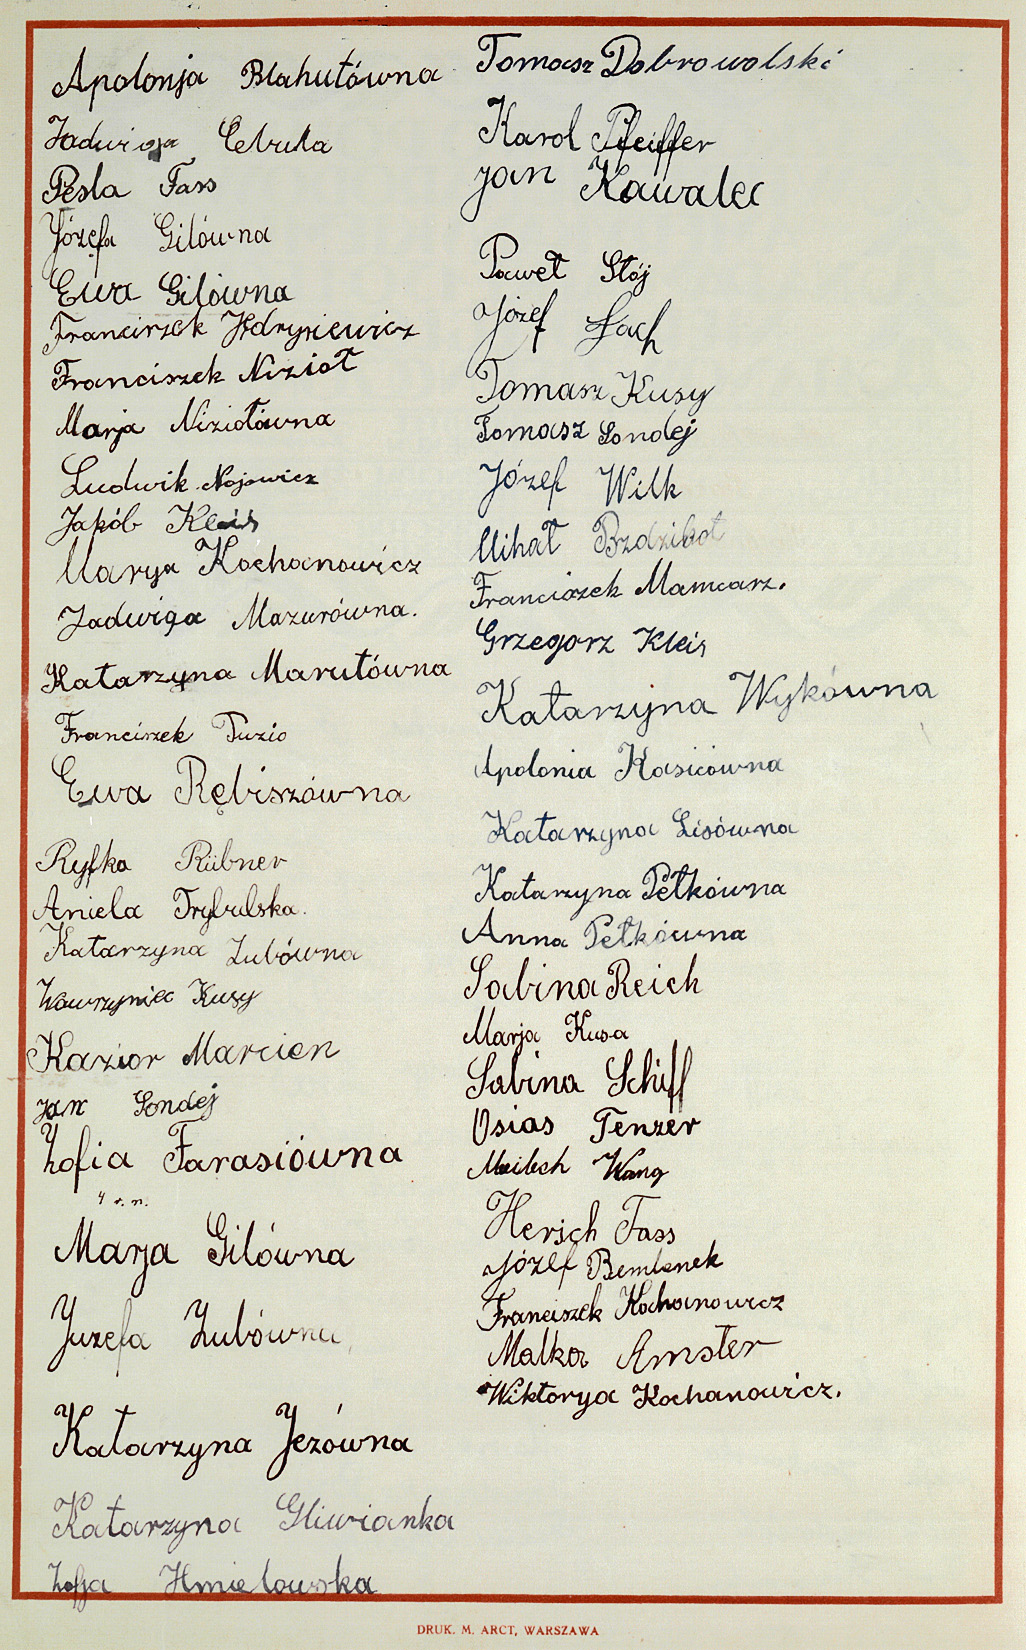 Apolonja Blahutówna
Jadwiga Cebula
Pesla Fass
Józefa Gilówna
Ewa Gilówna
Franciszek Jędrysiewicz
Franciszek Nizioł
Marja Niziołówna
Ludwik Nojowicz
Jakób Kleis
Marya Kochanowicz
Jadwiga Mazurówna.
Katarzyna Marutówna
Franciszek Tuzio
Ewa Rębiszówna
Ryfka Rübner
Aniela Trybulska.
Katarzyna Zubówna
Wawrzyniec Kusy
Kazior Marcien
Jan Sondej
Zofia Farasiówna
Marja Gilówna
Juzefa Zubówna
Katarzyna Jeżówna
Katarzyna Gliwianka
Zofja Hmielowska
Tomasz Dobrowolski
Karol Pfeiffer
Jan Kawalec
Paweł Stój
Józef Lach
Tomasz Kusy
Tomasz Sondej
Józef Wilk
Mihał Bzdzikot
Franciszek Mamcarz.
Grzegorz Kleis
Katarzyna Wykówna
Apolonia Kasicówna
Katarzyna Lisówna
Katarzyna Petkówna
Anna Petkówna
Sabina Reich
Marja Kusa
Sabina Schiff
Osias Tenzer
Meilech Wang
Hersch Fass
Józef Bembenek
Franciszek Kochanowicz
Malka Amster
Wiktorya Kochanowicz.
DRUK. M. ARCT, WARSZAWA